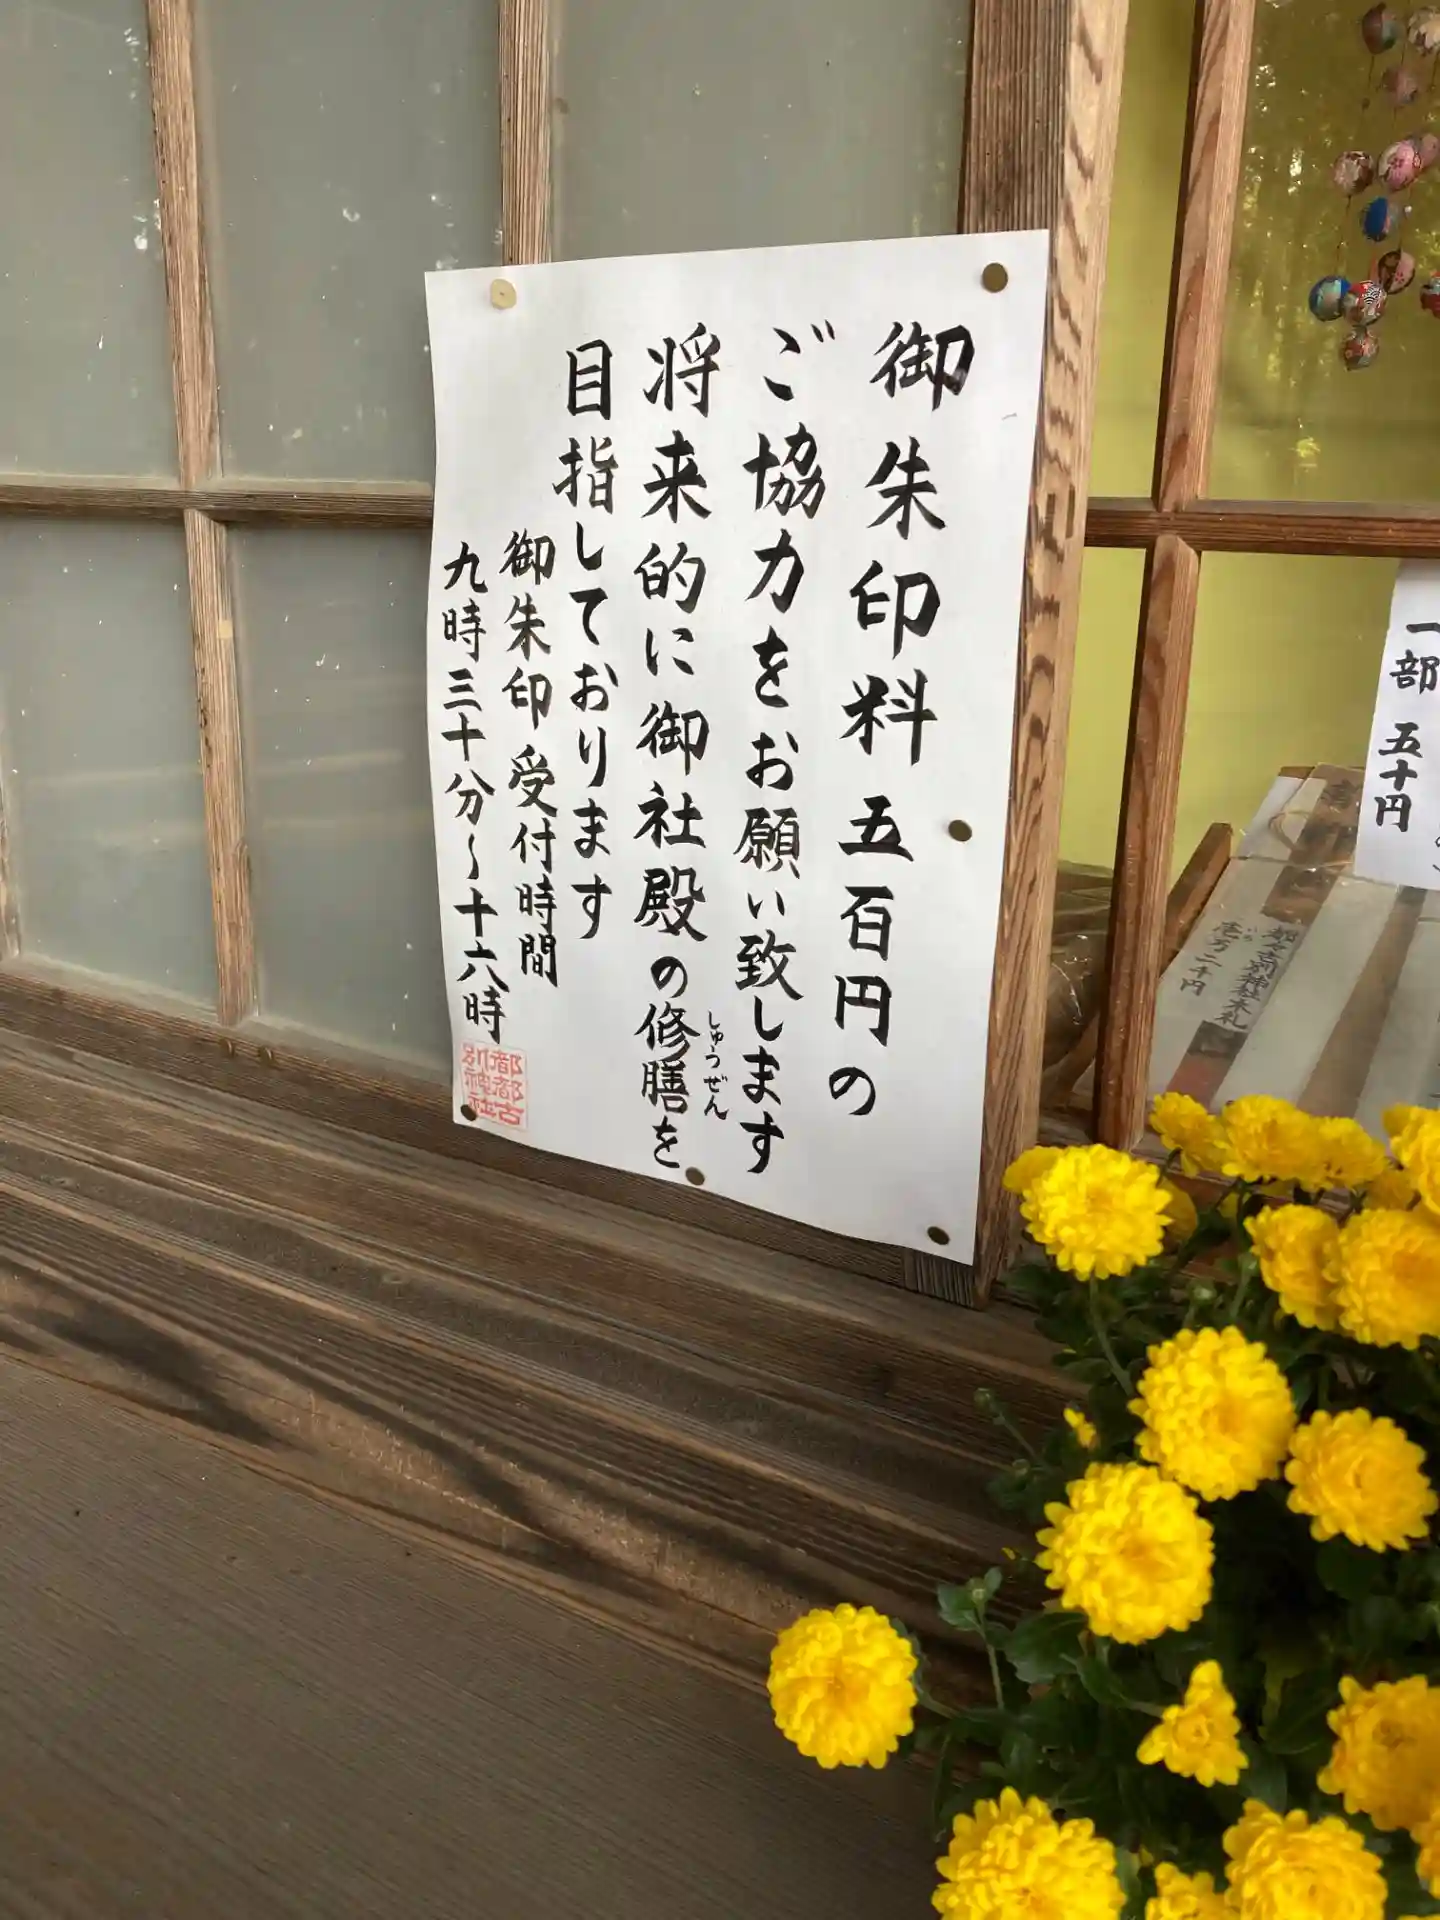 御朱印料 五百円の
ご協力をお願い致します
将来的に御社殿の修膳を
しゅうぜん
目指しております
御朱印受付時間
九時三十分～十六時
都都古
別神社
一部 五十円
都々古別神社木札
壱万二千円
いち